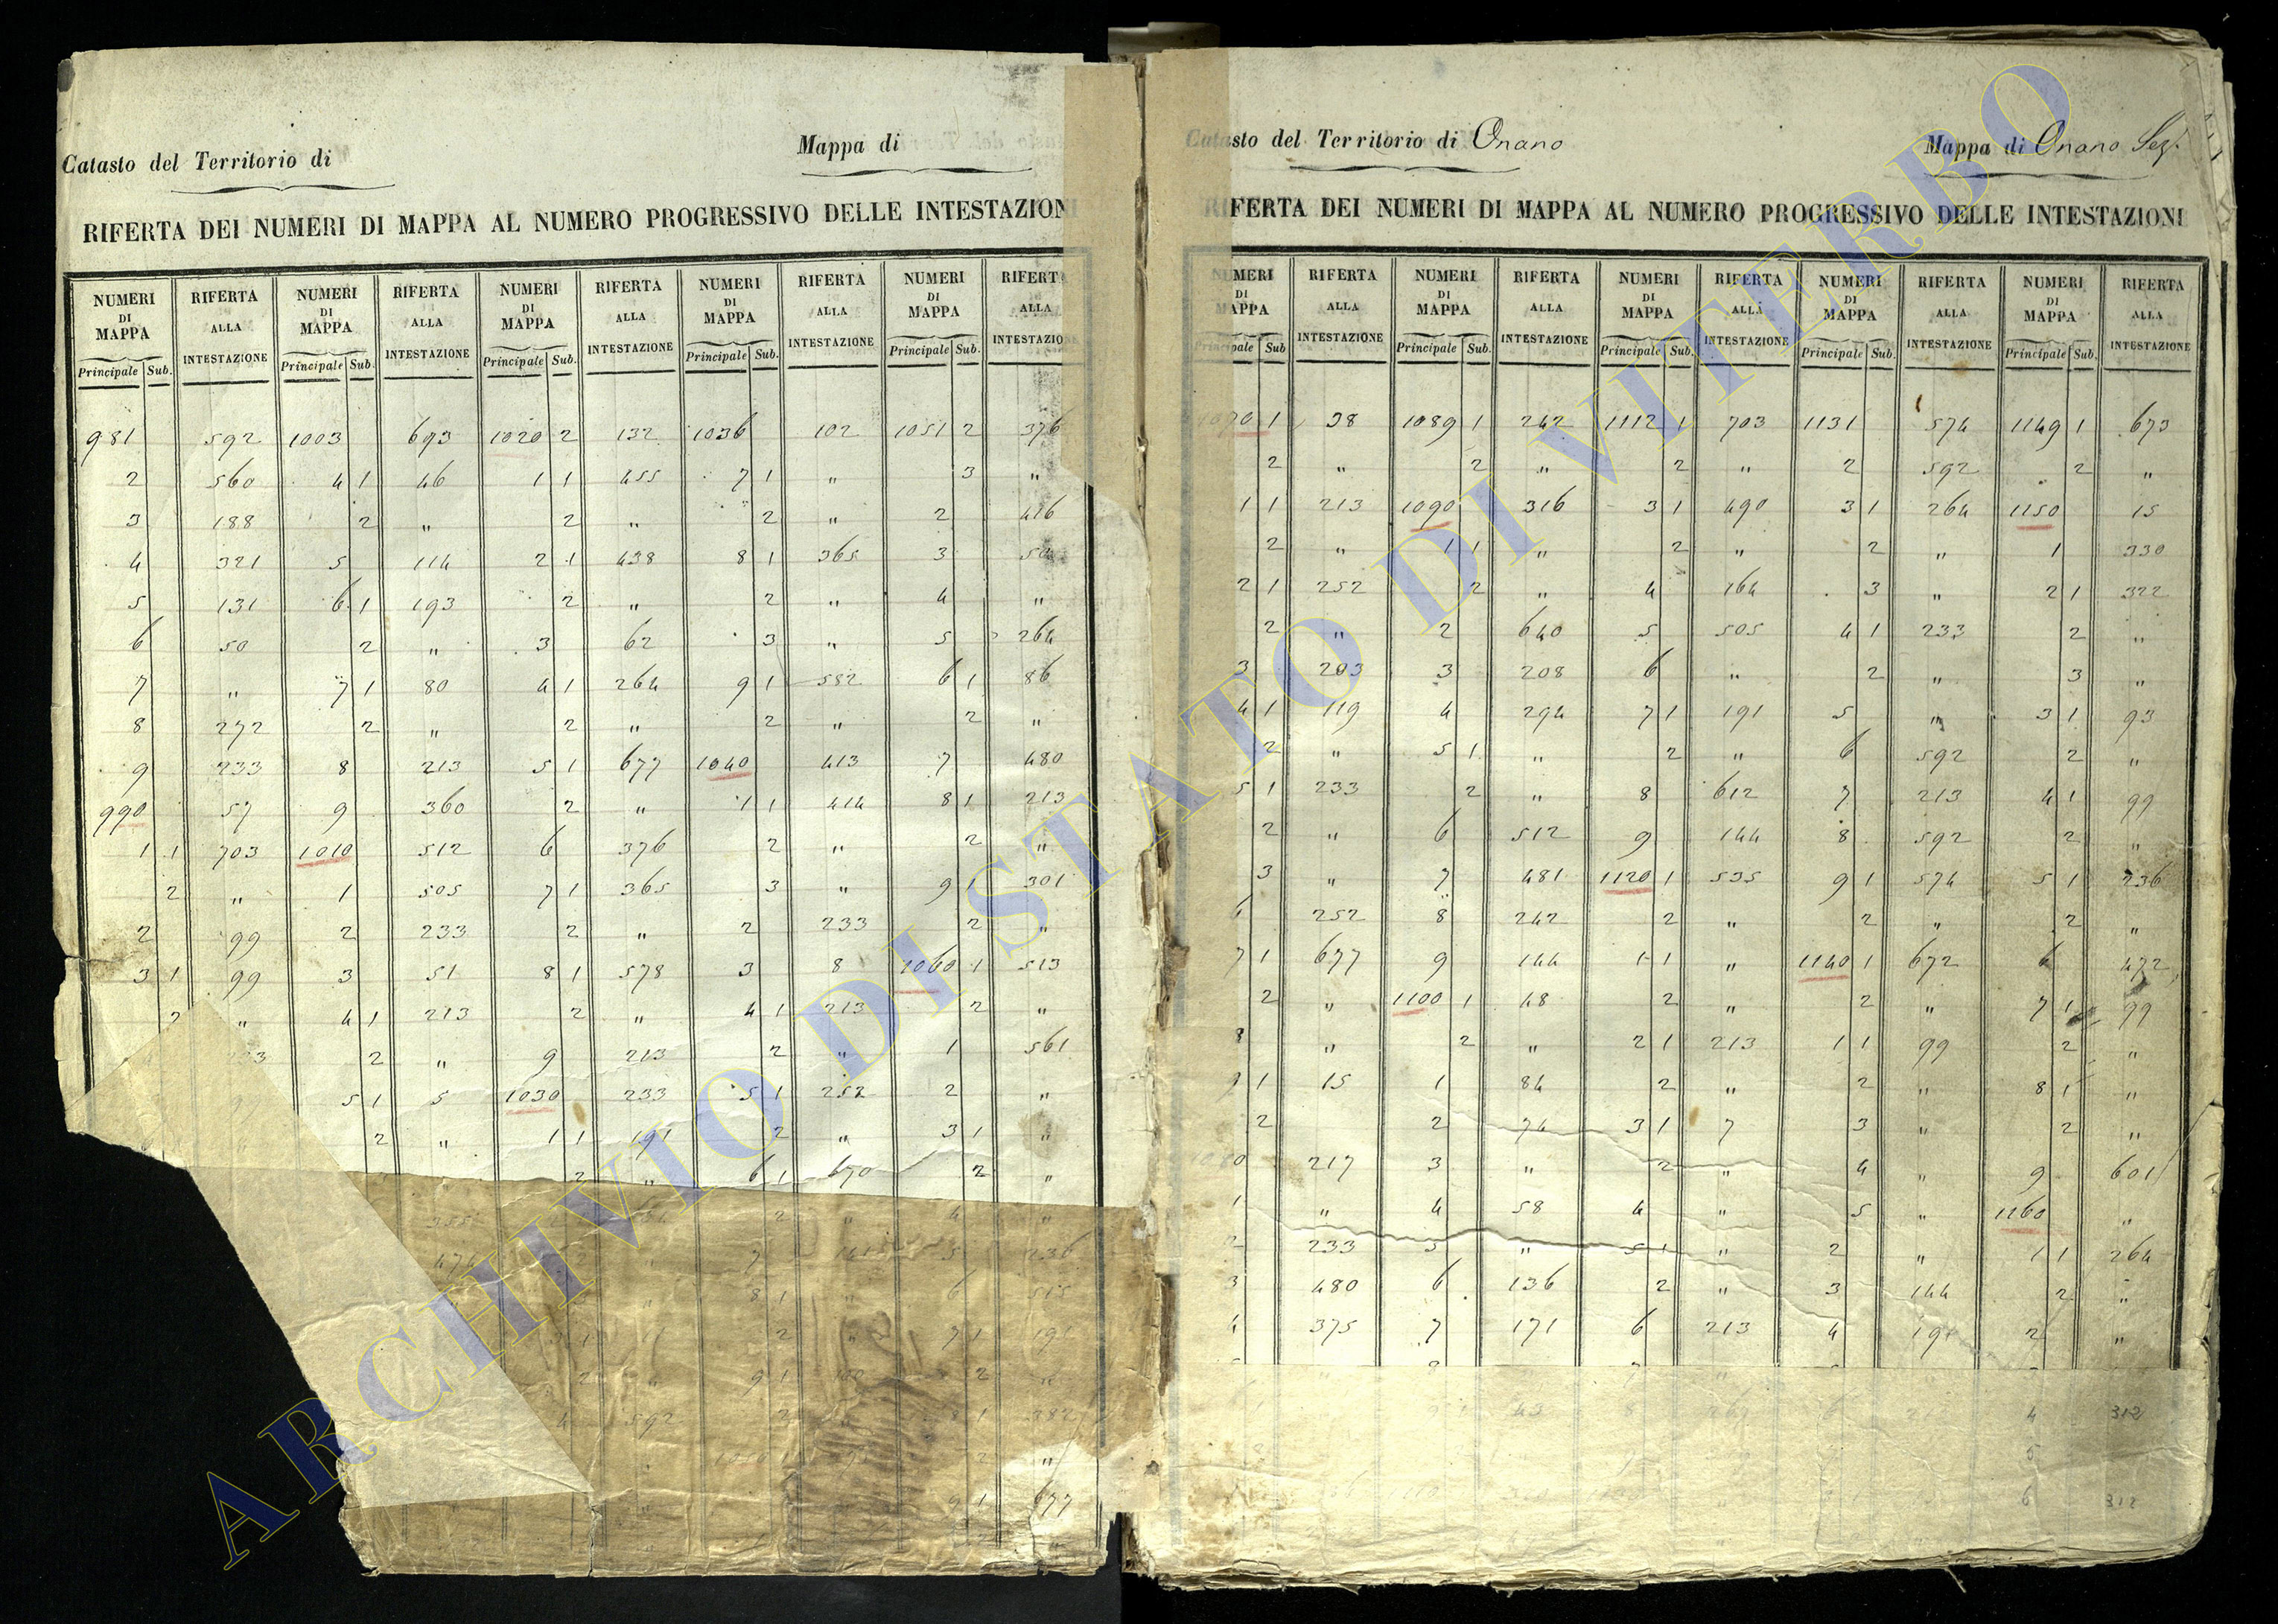 Catasto del Territorio di
Mappa di
RIFERTA DEI NUMERI DI MAPPA AL NUMERO PROGRESSIVO DELLE INTESTAZION
NUMERI DI MAPPA RIFERTA ALLA INTESTAZIONE NUMERI DI MAPPA RIFERTA ALLA INTESTAZIONE NUMERI DI MAPPA RIFERTA ALLA INTESTAZIONE NUMERI DI MAPPA RIFERTA ALLA INTESTAZIONE NUMERI DI MAPPA RIFERTA ALLA INTESTAZIO
Principale Sub. Principale Sub. Principale Sub. Principale Sub. Principale Sub.
981 592 1003 693 1020 2 132 1036 102 1051 2 376
2 560 4 1 46 1 1 455 7 1 " 3 "
3 188 2 " 2 " 2 " 2 416
4 321 5 114 2 1 438 8 1 365 3
5 131 6 1 193 2 " 2 " 4 "
6 50 2 " 3 62 3 " 5 264
7 " 7 1 80 4 1 264 9 1 582 6 1 86
8 272 2 " 2 " 2 " 2 "
9 233 8 213 5 1 677 1040 413 7 480
990 57 9 360 2 " 1 1 414 8 1 213
1 1 703 1010 512 6 376 2 " 2 "
2 " 1 505 7 1 365 3 " 9 1 301
2 99 2 233 2 " 2 233 2 "
3 1 99 3 51 8 1 578 3 8 1060 1 513
2 " 4 1 213 2 " 4 1 213 2 "
2 " 9 213 2 " 1 561
5 1 5 1030 233 5 1 252 2 "
2 " 1 1 191 2 " 3 1 "
2 " 6 1 670 2 "
2 " 4 "
7 5 236
8 1 " 6 515
2 " 7 1
9 1 2 "
592 8 1
2 "
9 1 677
Catasto del Territorio di Onano
Mappa di Onano Sez.
RIFERTA DEI NUMERI DI MAPPA AL NUMERO PROGRESSIVO DELLE INTESTAZIONI
NUMERI DI MAPPA RIFERTA ALLA INTESTAZIONE NUMERI DI MAPPA RIFERTA ALLA INTESTAZIONE NUMERI DI MAPPA RIFERTA ALLA INTESTAZIONE NUMERI DI MAPPA RIFERTA ALLA INTESTAZIONE NUMERI DI MAPPA RIFERTA ALLA INTESTAZIONE
Principale Sub Principale Sub. Principale Sub. Principale Sub. Principale Sub.
1070 1 38 1089 1 242 1112 1 703 1131 574 1149 1 673
2 " 2 " 2 " 2 592 2 "
1 1 213 1090 316 3 1 490 3 1 264 1150 15
2 " 1 1 " 2 " 2 " 1 330
2 1 252 2 " 4 164 3 " 2 1 322
2 " 2 640 5 505 4 1 233 2 "
3 203 3 208 6 " 2 " 3 "
4 1 119 4 294 7 1 191 5 " 3 1 93
2 " 5 1 " 2 " 6 592 2 "
5 1 233 2 " 8 612 7 213 4 1 99
2 " 6 512 9 144 8 592 2 "
3 " 7 481 1120 1 535 9 1 574 5 1 236
6 252 8 242 2 " 2 " 2 "
7 1 677 9 144 1 1 " 1140 1 672 6 472
2 " 1100 1 48 2 " 2 " 7 1 99
8 " 2 " 2 1 213 1 1 99 2 "
9 1 15 1 84 2 " 2 " 8 1 "
2 2 74 3 1 7 3 " 2 "
1080 217 3 " 2 " 4 " 9 601
1 " 4 58 4 " 5 " 1160 "
2 233 5 " 5 1 " 2 " 1 1 264
3 480 6 136 2 " 3 144 2 "
4 375 7 171 6 213 4 191 2 "
43 8 4 312
5
6 312
ARCHIVIO DI STATO DI VITERBO